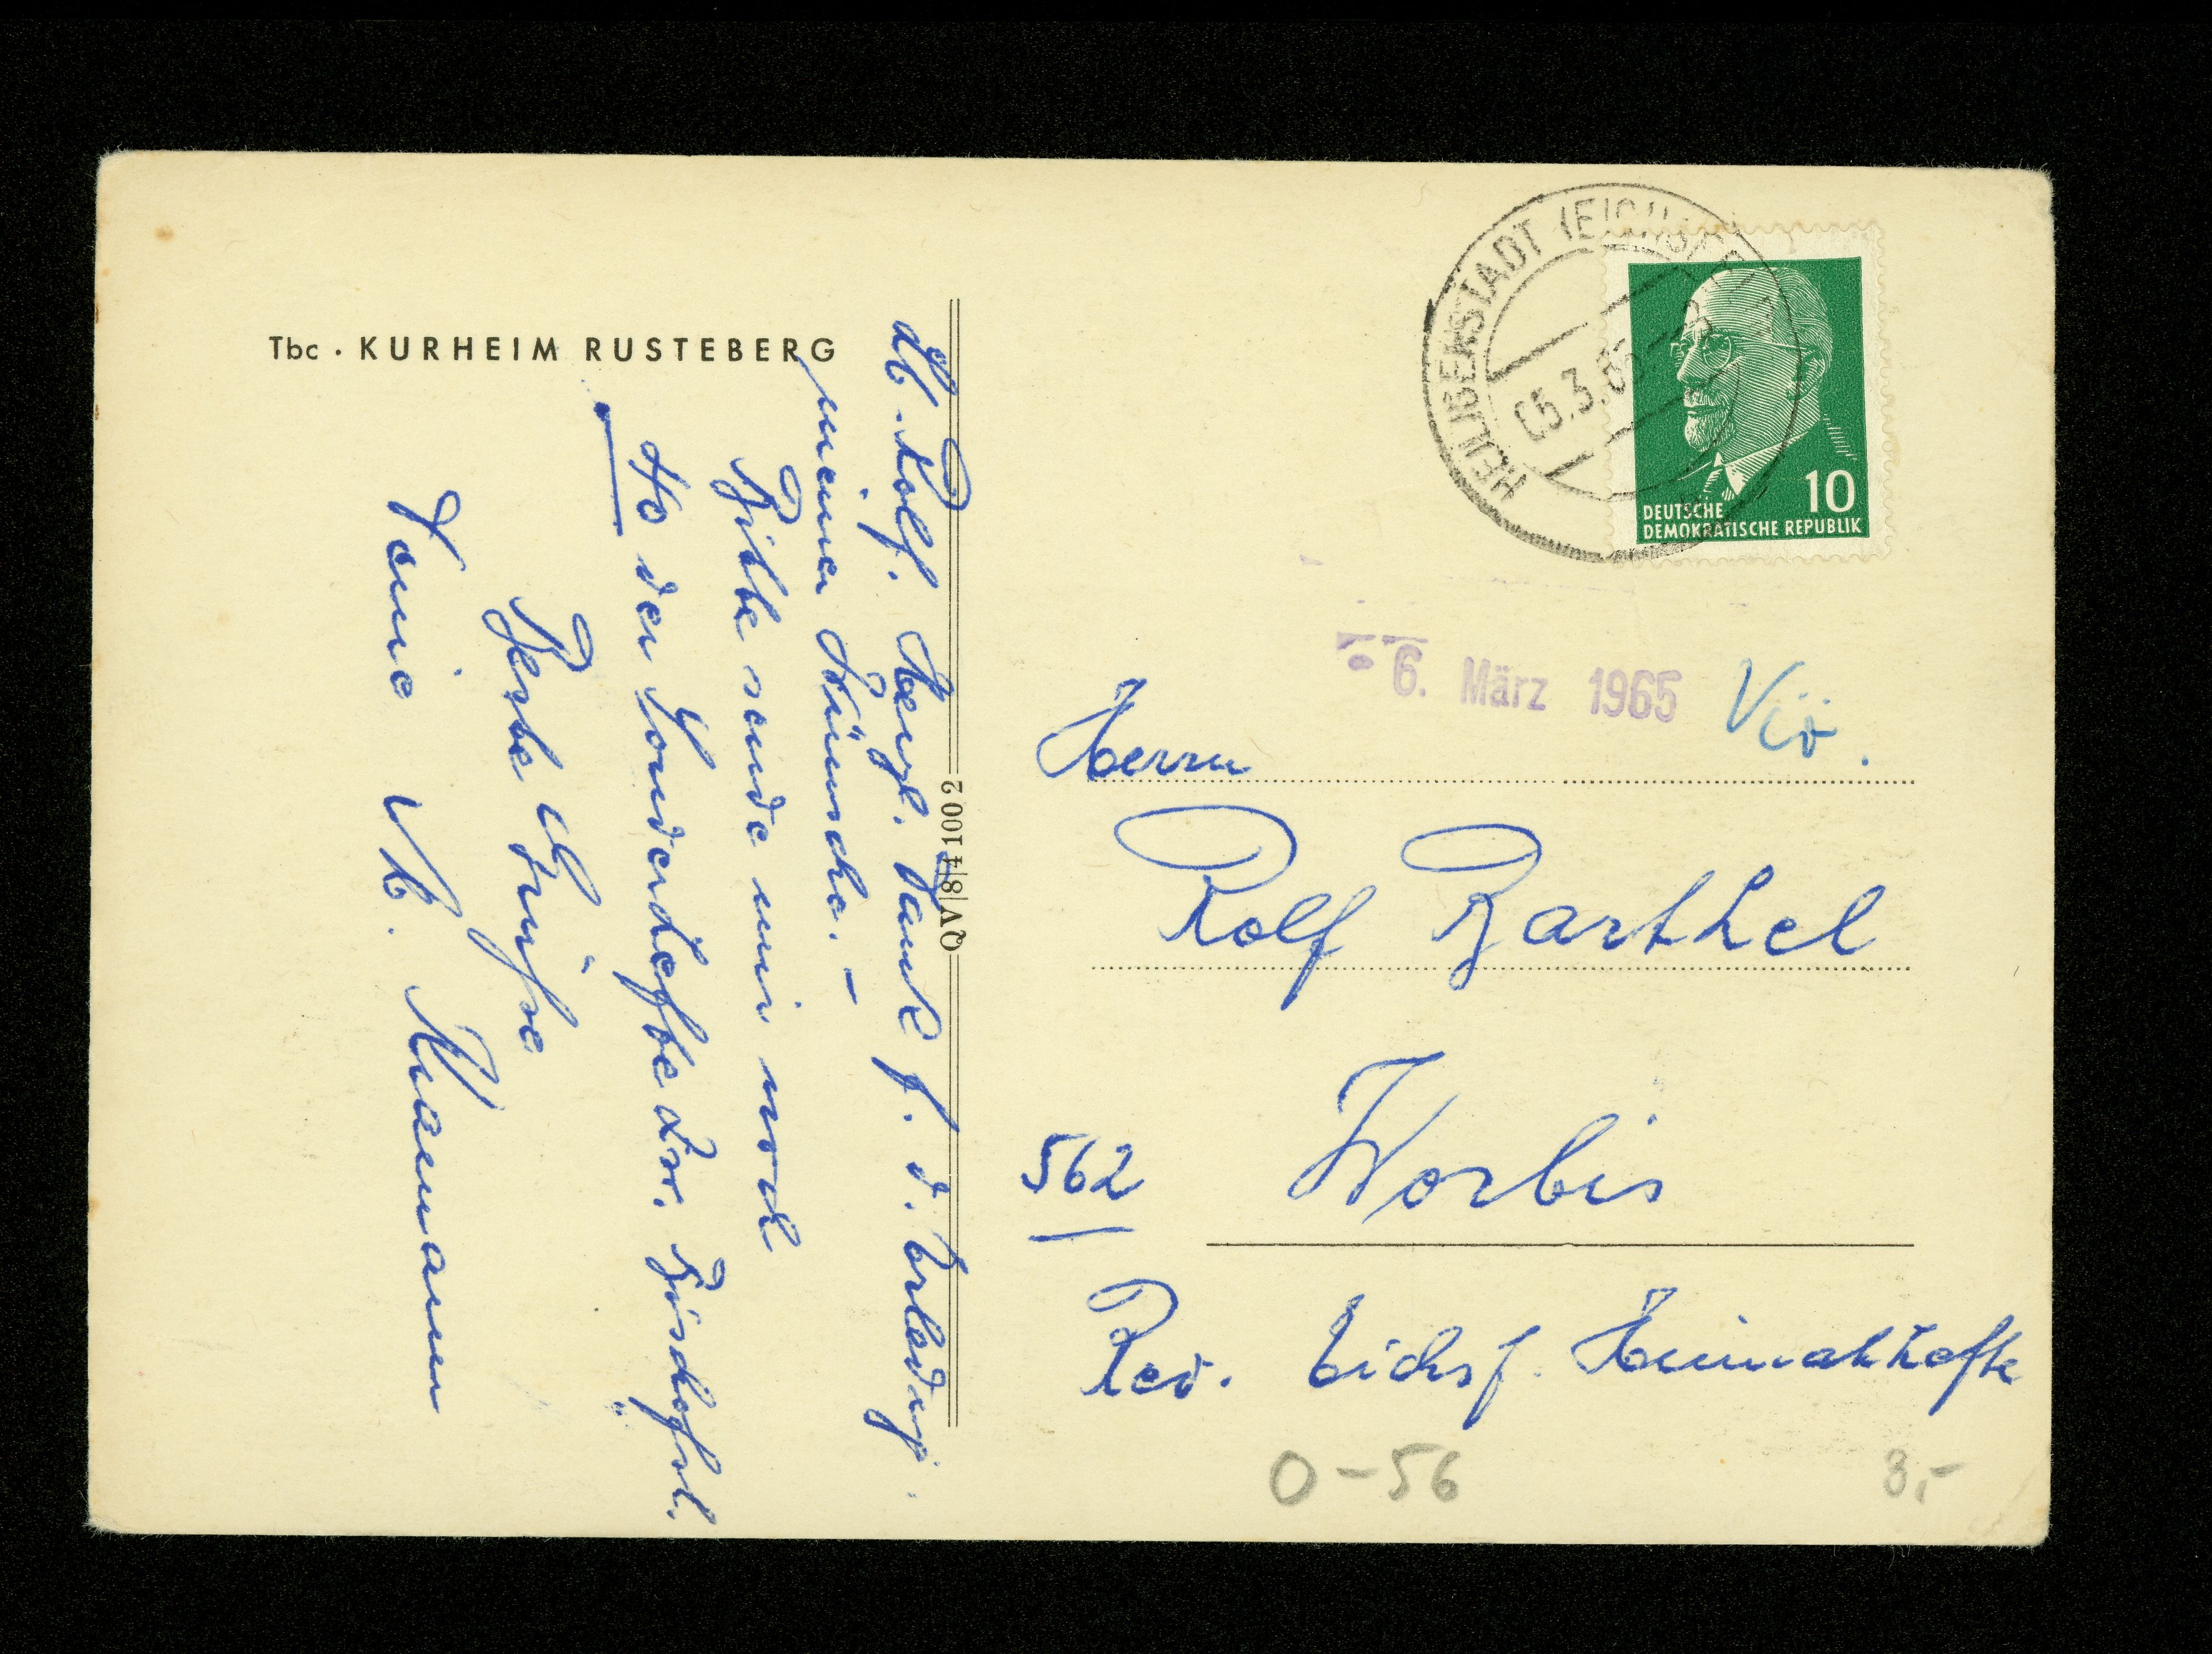 Tbc · KURHEIM RUSTEBERG
Lb. Rolf. Herzl. Dank f. d. Erledig.
meiner Wünsche. –
Bitte sende mir noch
40 der Sonderhefte Dr. Bischöfl.
Beste Grüße
Dein
QV/8/4 1002
HEILIGENSTADT (EICHSFELD)
05.3.65
10
DEUTSCHE
DEMOKRATISCHE REPUBLIK
- 6. März 1965
Herrn
Rolf Barthel
562 Worbis
Red. Eichsf. Heimathefte
O-56 3,-